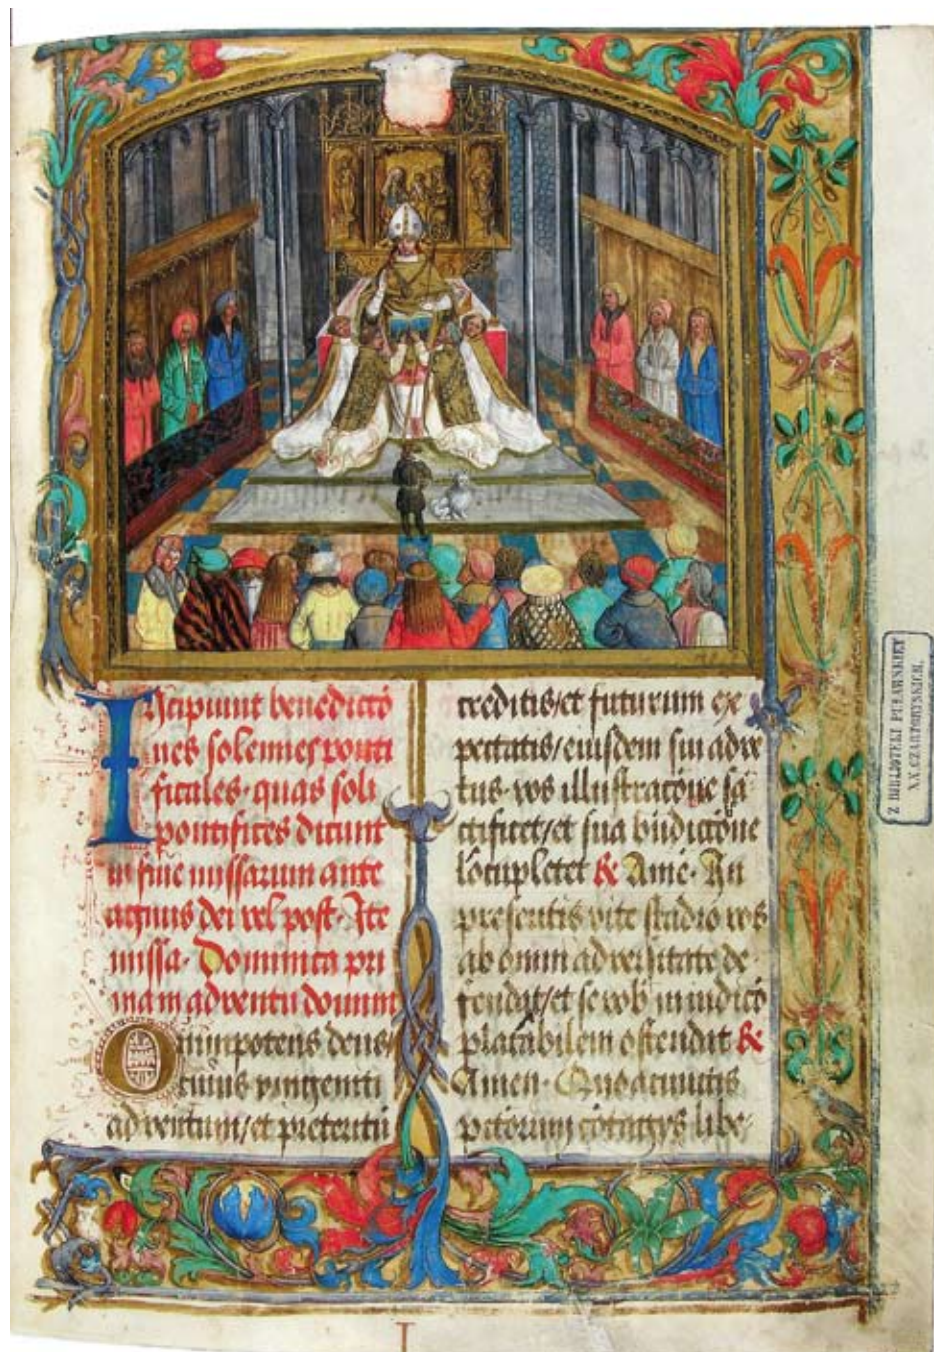 Incipiunt benedictō
nes solennes ponti
ficales· quas soli
pontifices dicunt
in fine missarum ante
agnus dei vel post· Ite
missa· Dominica pri
ma in adventu domini
Omnipotens deus/
cuius unigeniti
adventum/et preteritū
creditis/et futurum ex
pectatis/eiusdem sui adve
tus· vos illustracōne sā
ctificet/et sua bn̄dictōne
locupletet & Amē· In
presentis vite stadio vos
ab omni adversitate de
fendat/et se vob̄ in iudicō
placabilem ostendat &
Amen· Quo a cunctis
pctōrum cōtagys libe-
Z BIBLIOTEKI PUŁAWSKIEY
X.X. CZARTORYSKICH.